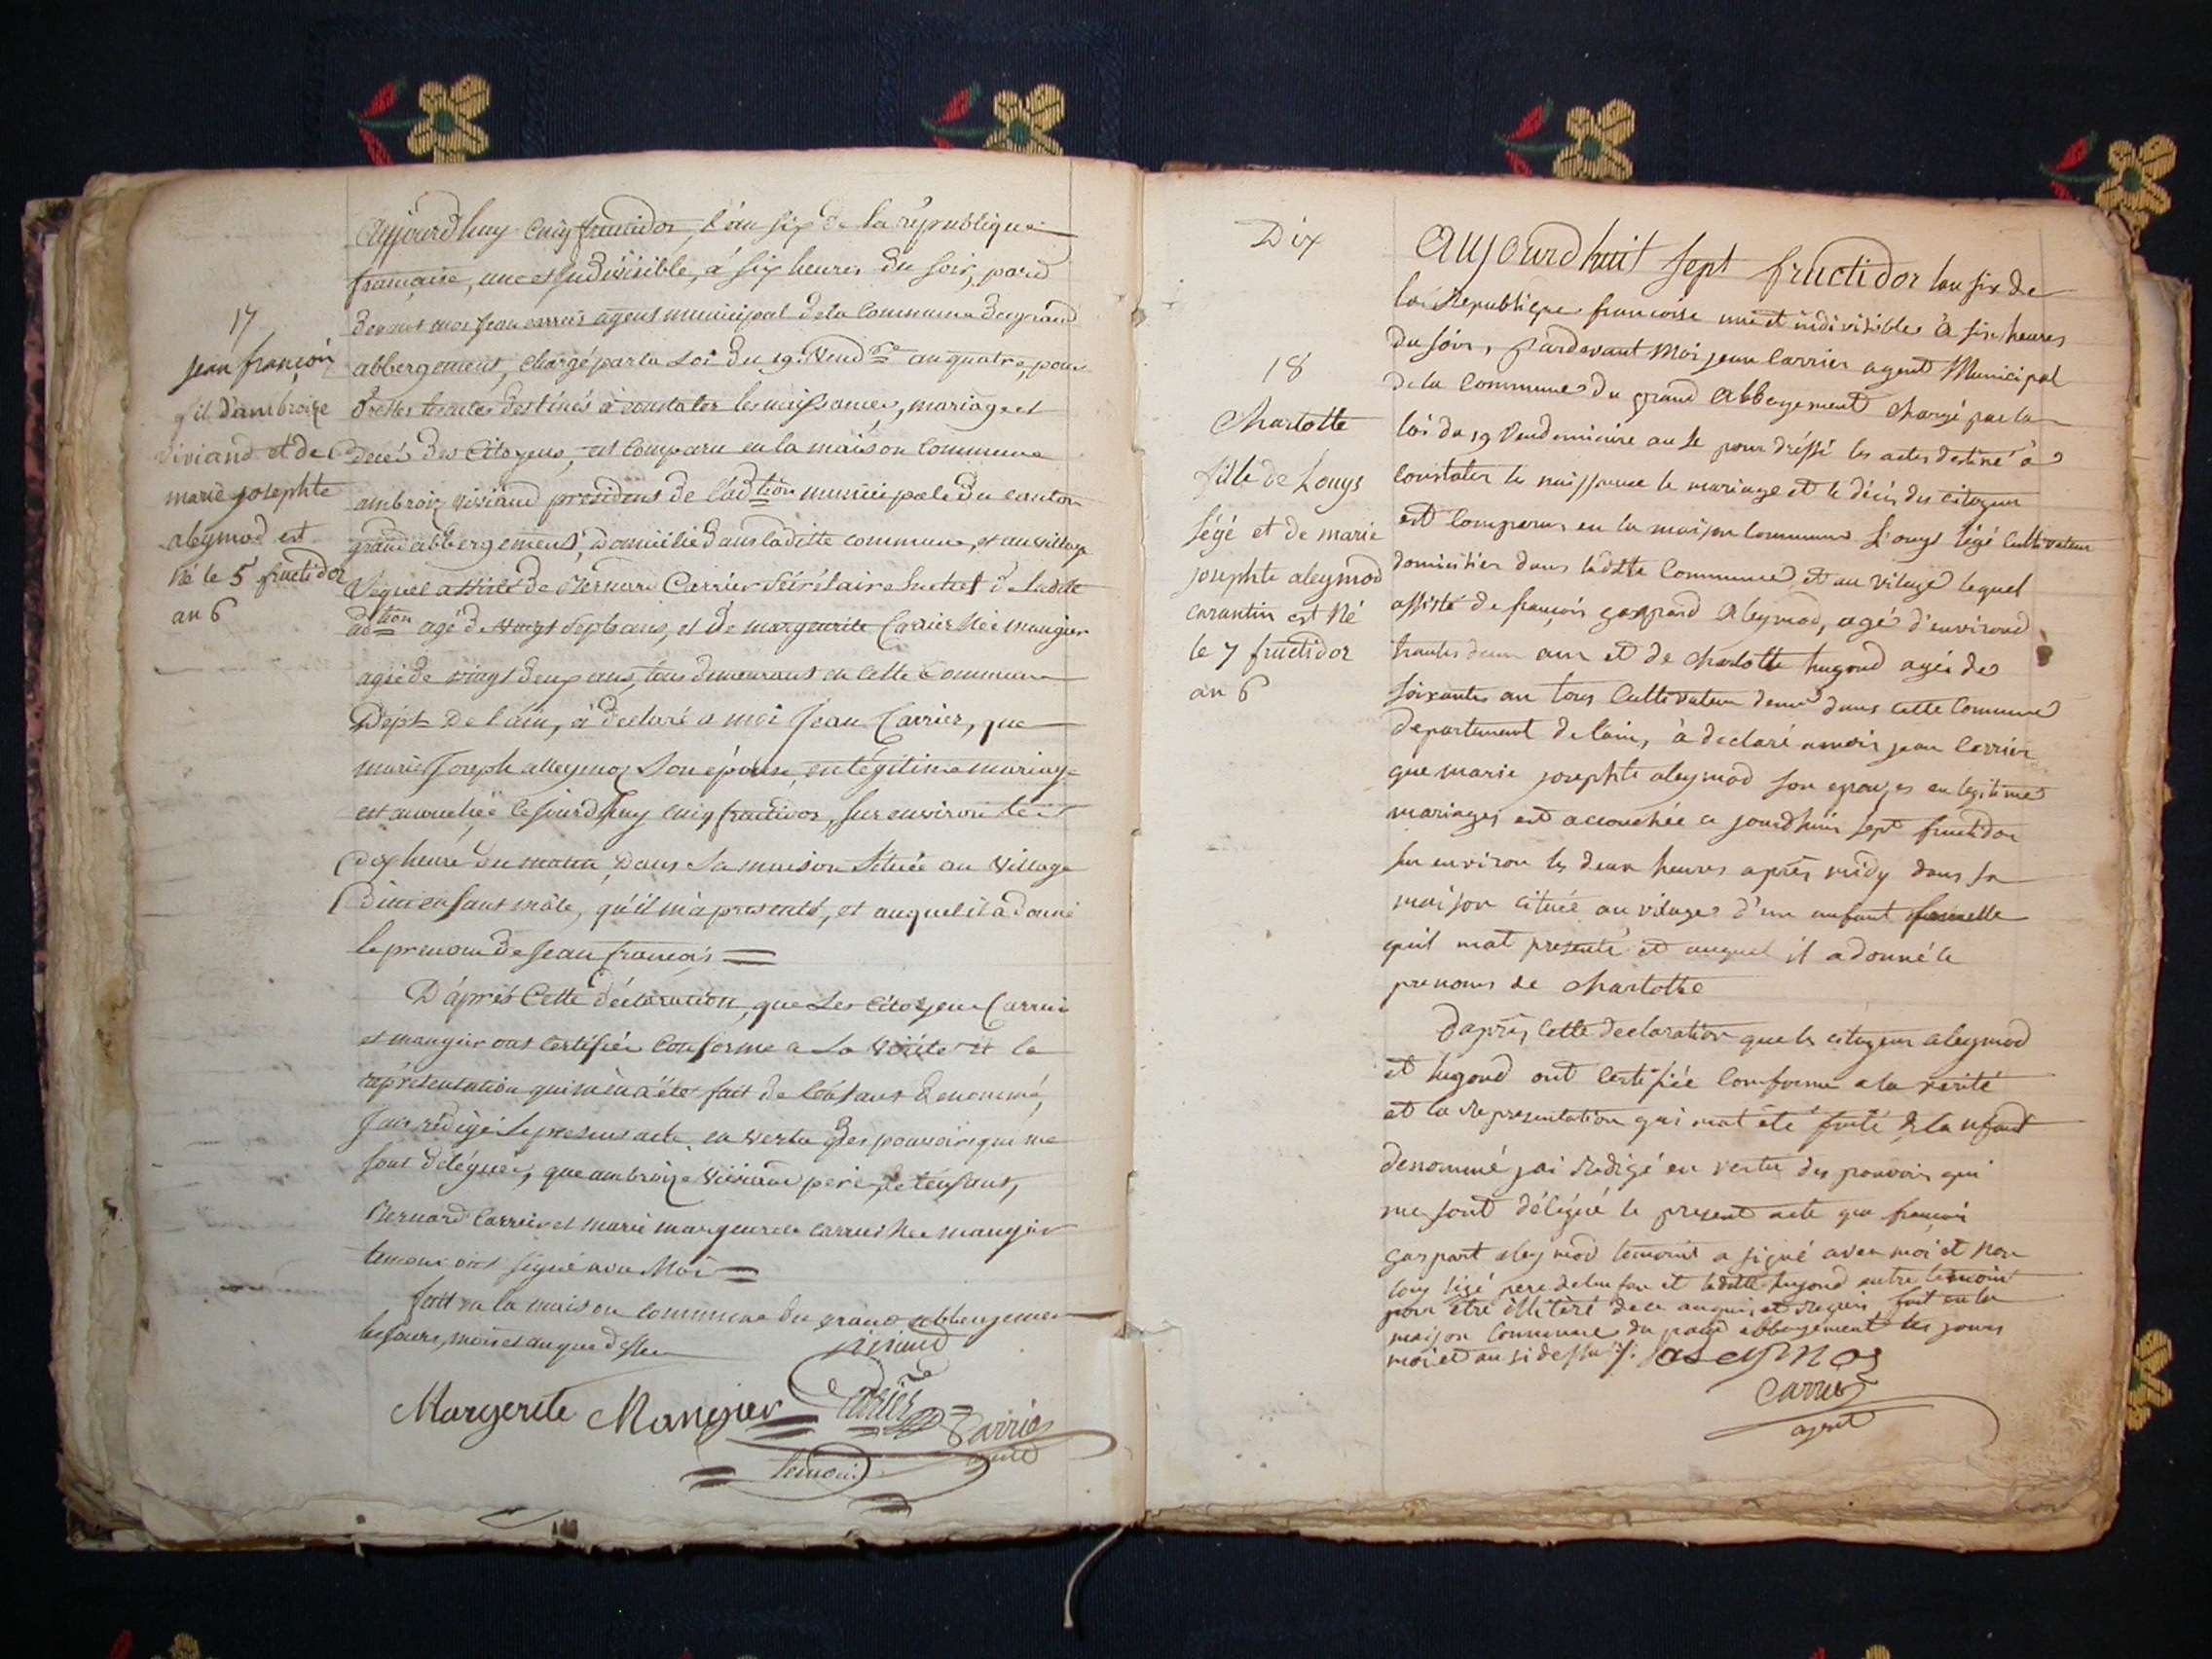 17
jean françois
fil d'ambroize
viviand et de
marie josephte
aleymod est
né le 5 fructidor
an 6
Aujourdhuy cinq fructidor, l'an six de la république
française, une et indivisible, à six heures du soir, pard
devant moi jean carrier agent municipal de la commune du grand
abbergement, chargé par la Loi du 19 Vend.re an quatre, pour
dresser les actes destinés à constater les naissances, mariage et
décés des Citoyens, est comparu en la maison commune
ambroiz viviand president de l'ad.tion municipale du canton
grand abbergement, domicilié dans laditte commune, et au village
lequel assisté de Bernard Carrier sécrétaire de ladite
ad.tion agé de vingt sept ans, et de marguerite Carrier née mangier
agée de vingt deux ans, tous demeurant en cette commune
Dépt. de l'ain, à declaré a moi Jean Carrier, que
marie Joseph alleymoz son épouse, en légitime mariage
est accouchée ce jourdhuy cinq fructidor, sur environ les
dix heure du matin, dans sa maison située au village
d'un enfant mâle, qu'il m'a presenté, et auquel il a donné
le prenom de jean françois =
D'après cette déclaration, que les citoyens Carrier
et mangier ont certifiée conforme a la vérité et la
réprésentation qui m'en a été fait de l'enfant denommé,
J'ai rédigé le présent acte en vertu des pouvoirs qui me
sont délégués, que ambroize viviand pere de l'enfant,
Bernard Carrier et marie marguerite carrier née mangier
temoins ont signé avec Moi =
fait en la maison commune du grand abbergement
les jours, mois et an que dessus
viviand
Margerite Mangier Carrier Carrier
temoin agent
Dix
18
Charlotte
fille de Louys
légé et de marie
josephte aleymod
carantin est né
le 7 fructidor
an 6
Aujourdhuit sept fructidor lan six de
la Republique francoise une et indivisible à six heures
du soir, pardevant Moi jean Carrier agent Municipal
de la commune du grand abbergement chargé par la
loi du 19 Vendemiaire an 4 pour dréssé les actes destiné a
constater la naissance le mariage et le décés des citoyens
est comparus en la maison commune Louys légé cultivateur
domicilier dans laditte commune et au vilage lequel
assisté de françois gaspard Aleymod, agé d'environd
trantes deux ans et de charlotte hugond agée de
soixantes an tous cultivateur dem.t dans cette commune
departement de lain, à déclaré a moi jean Carrier
que marie josephte aleymod son epouzes en légitime
mariages est accouchée ce jourdhuis sept fructidor
sur environ les deux heures après midy dans sa
maison cituée au vilages d'un anfant femelle
quil mat presenté et auquel il a donné le
prenoms de charlotte
Daprès cette declaration que les citoyens aleymod
et hugond ont certifiée conforme a la vérité
et la Representation qui mat été faité de lanfant
denommé jai redigé en vertu des pouvoirs qui
me sont délégué le present acte que françois
gaspart aleymod temoins a signé avec moi et non
Louy légé pere de lanfan et laditte hugond autre temoin
pour étre illitéré de ce anquis et requis fait en la
maison commune du grand abbergement les jours
moi et an si dessus Aleymod
Carrier
agent